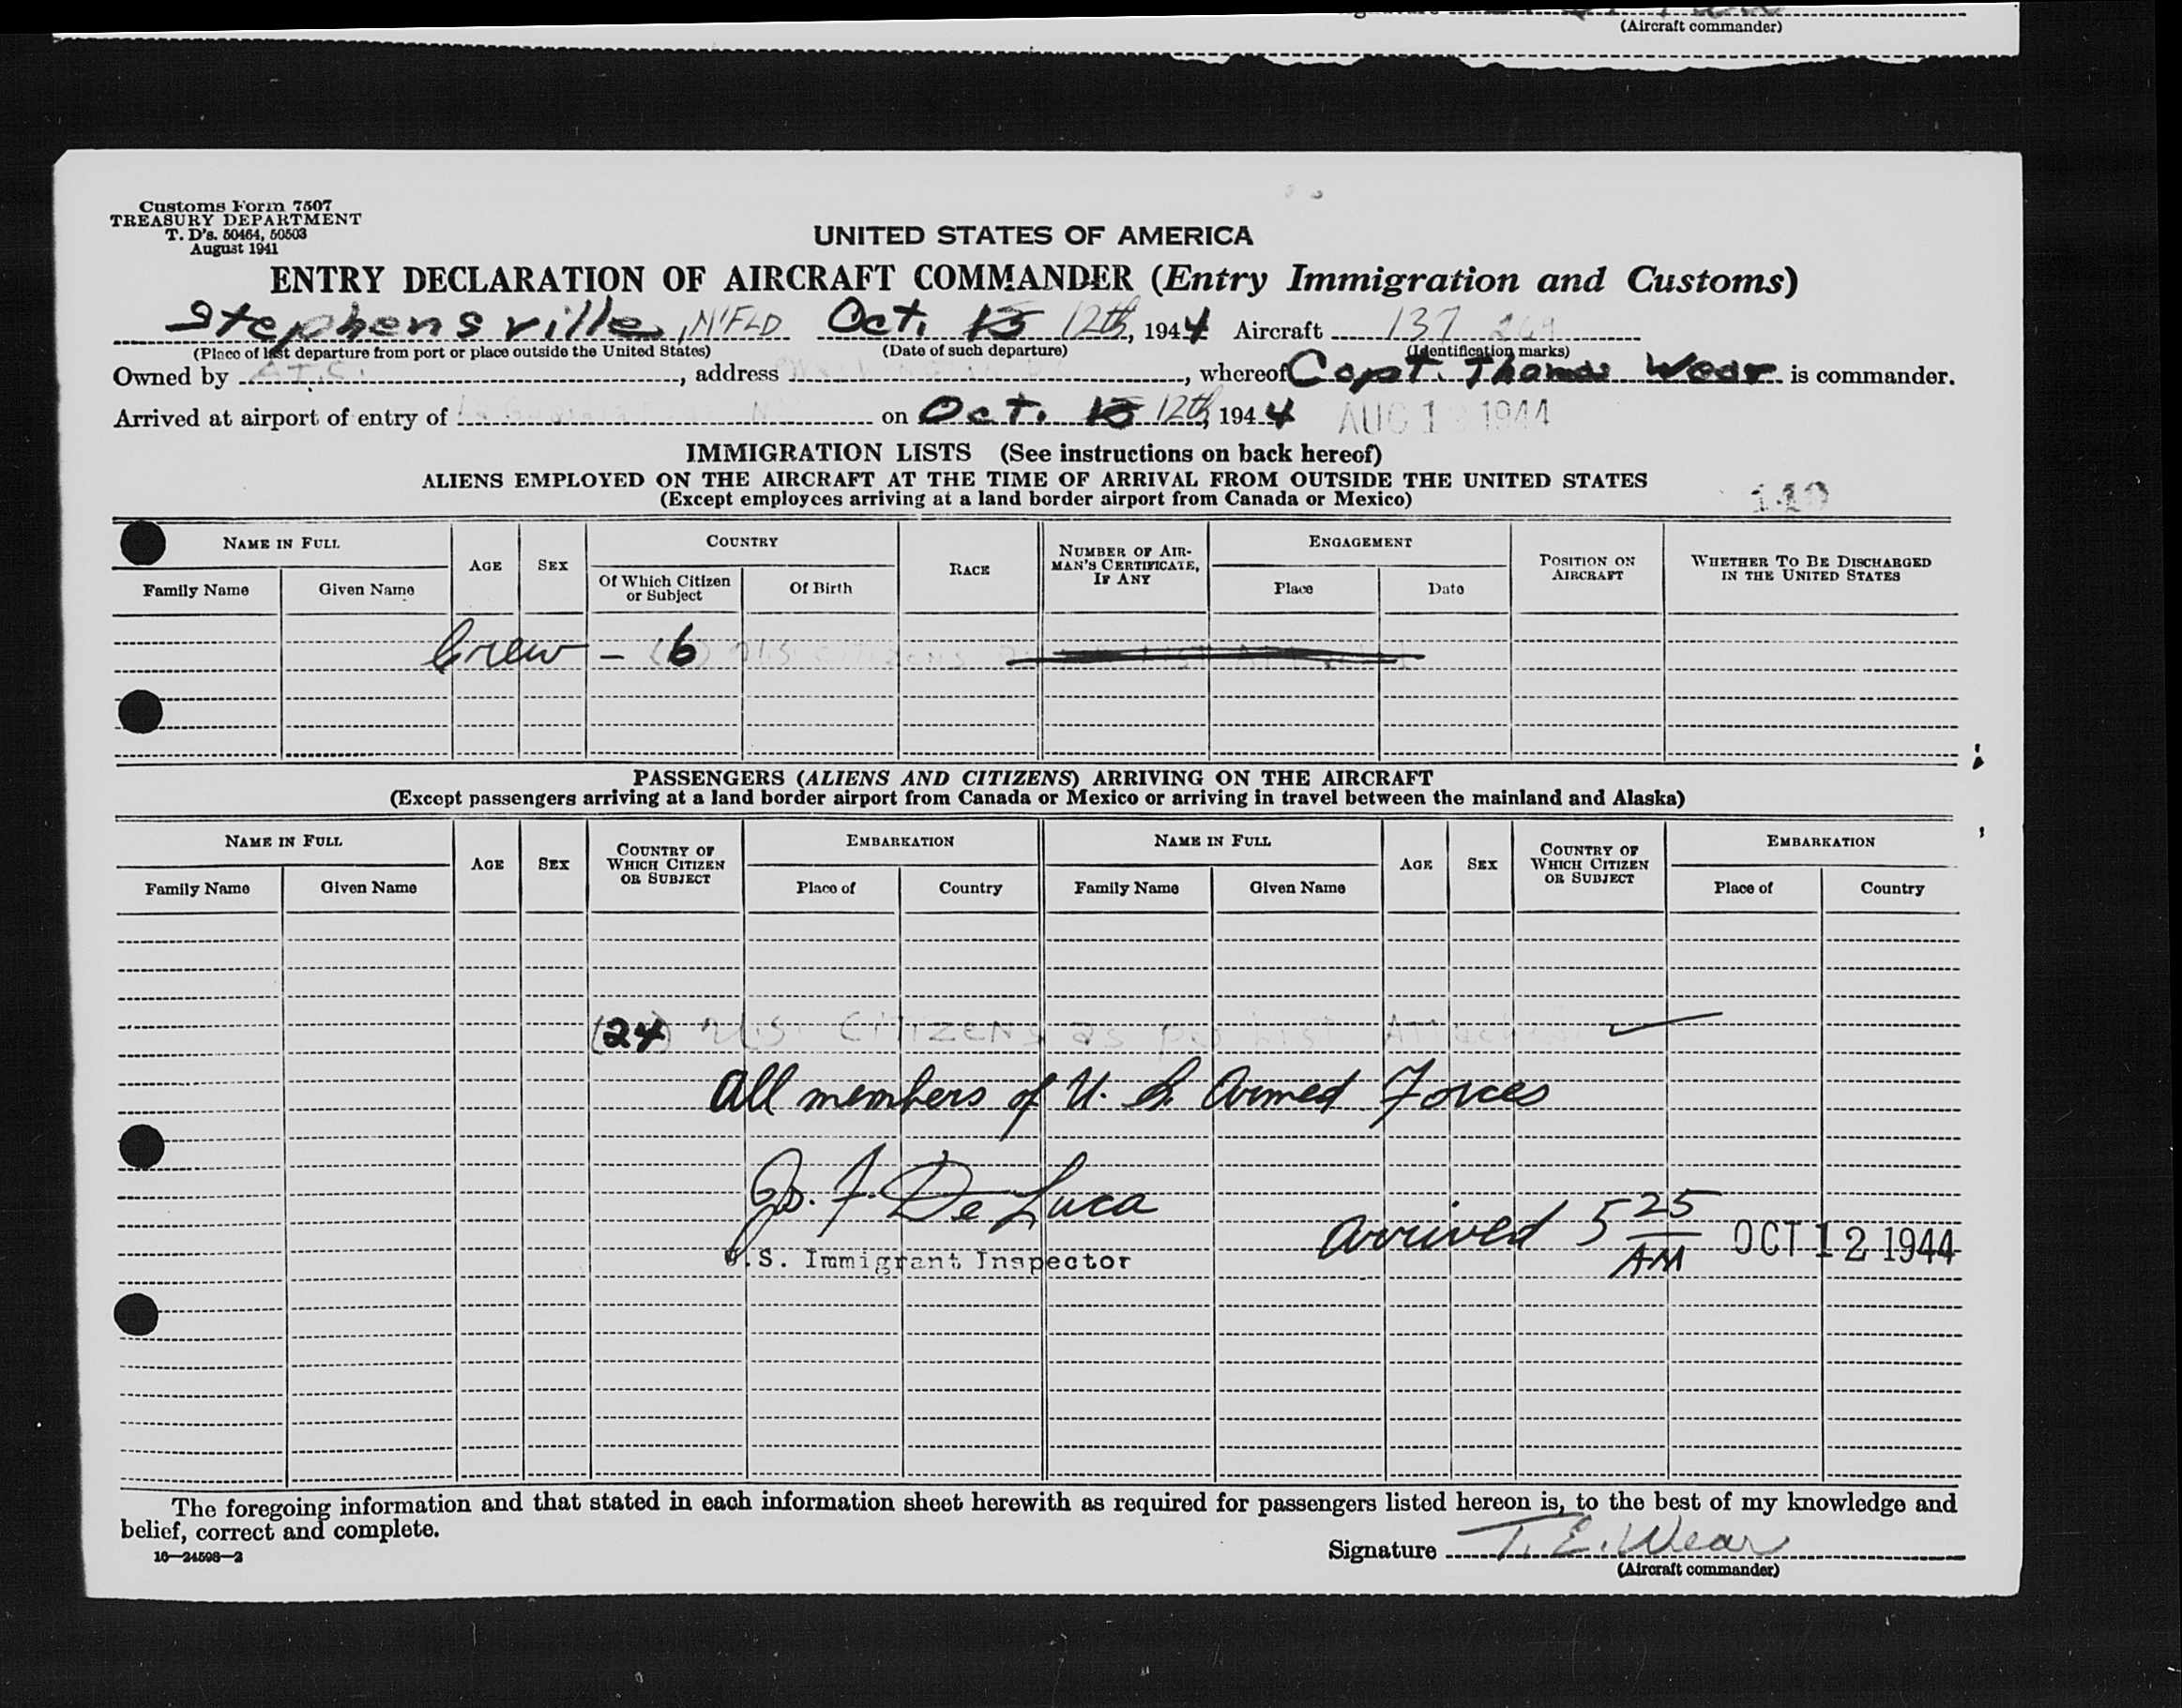 (Aircraft commander)
Customs Form 7507
TREASURY DEPARTMENT
T. D's. 50464, 50503
August 1941
UNITED STATES OF AMERICA
ENTRY DECLARATION OF AIRCRAFT COMMANDER (Entry Immigration and Customs)
Stephensville, N'FLD Oct. 12th, 1944 Aircraft 137
(Place of last departure from port or place outside the United States) (Date of such departure) (Identification marks)
Owned by A.T.C., address , whereof Capt. Thomas Wear is commander.
Arrived at airport of entry of on Oct. 12th, 1944 AUG 1 1944
IMMIGRATION LISTS (See instructions on back hereof)
ALIENS EMPLOYED ON THE AIRCRAFT AT THE TIME OF ARRIVAL FROM OUTSIDE THE UNITED STATES
(Except employees arriving at a land border airport from Canada or Mexico)
NAME IN FULL AGE SEX COUNTRY RACE NUMBER OF AIRMAN'S CERTIFICATE, IF ANY ENGAGEMENT POSITION ON AIRCRAFT WHETHER TO BE DISCHARGED IN THE UNITED STATES
Family Name Given Name Of Which Citizen or Subject Of Birth Place Date
Crew - (6) U.S. Citizens
PASSENGERS (ALIENS AND CITIZENS) ARRIVING ON THE AIRCRAFT
(Except passengers arriving at a land border airport from Canada or Mexico or arriving in travel between the mainland and Alaska)
NAME IN FULL AGE SEX COUNTRY OF WHICH CITIZEN OR SUBJECT EMBARKATION NAME IN FULL AGE SEX COUNTRY OF WHICH CITIZEN OR SUBJECT EMBARKATION
Family Name Given Name Place of Country Family Name Given Name Place of Country
(24) U.S. CITIZENS as per List Attached
All members of U. S. Armed Forces
Jos. F. De Luca
U.S. Immigrant Inspector
Arrived 5 25 AM OCT 12 1944
The foregoing information and that stated in each information sheet herewith as required for passengers listed hereon is, to the best of my knowledge and
belief, correct and complete.
16—24598—2
Signature T. E. Wear
(Aircraft commander)